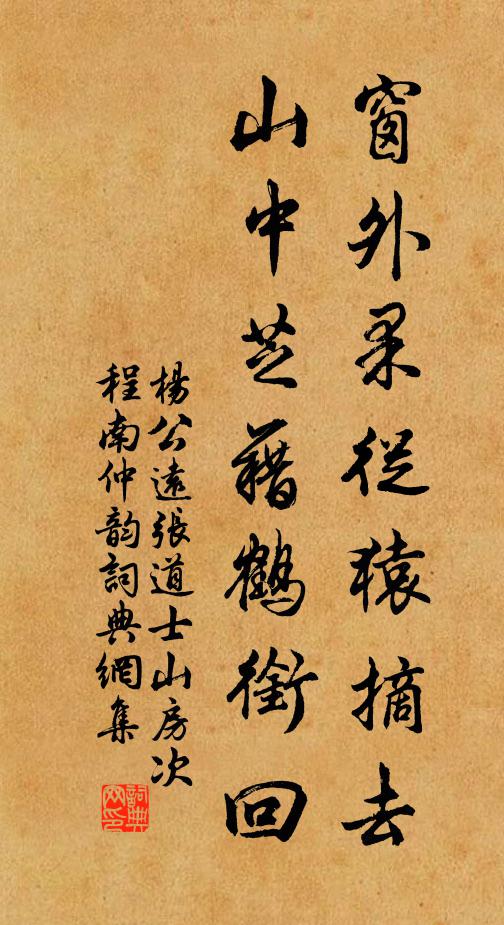 窗外果從猿摘去
山中芝藉鶴銜回
楊公遠張道士山房次
程南仲韵詞典網集
詞典
网印